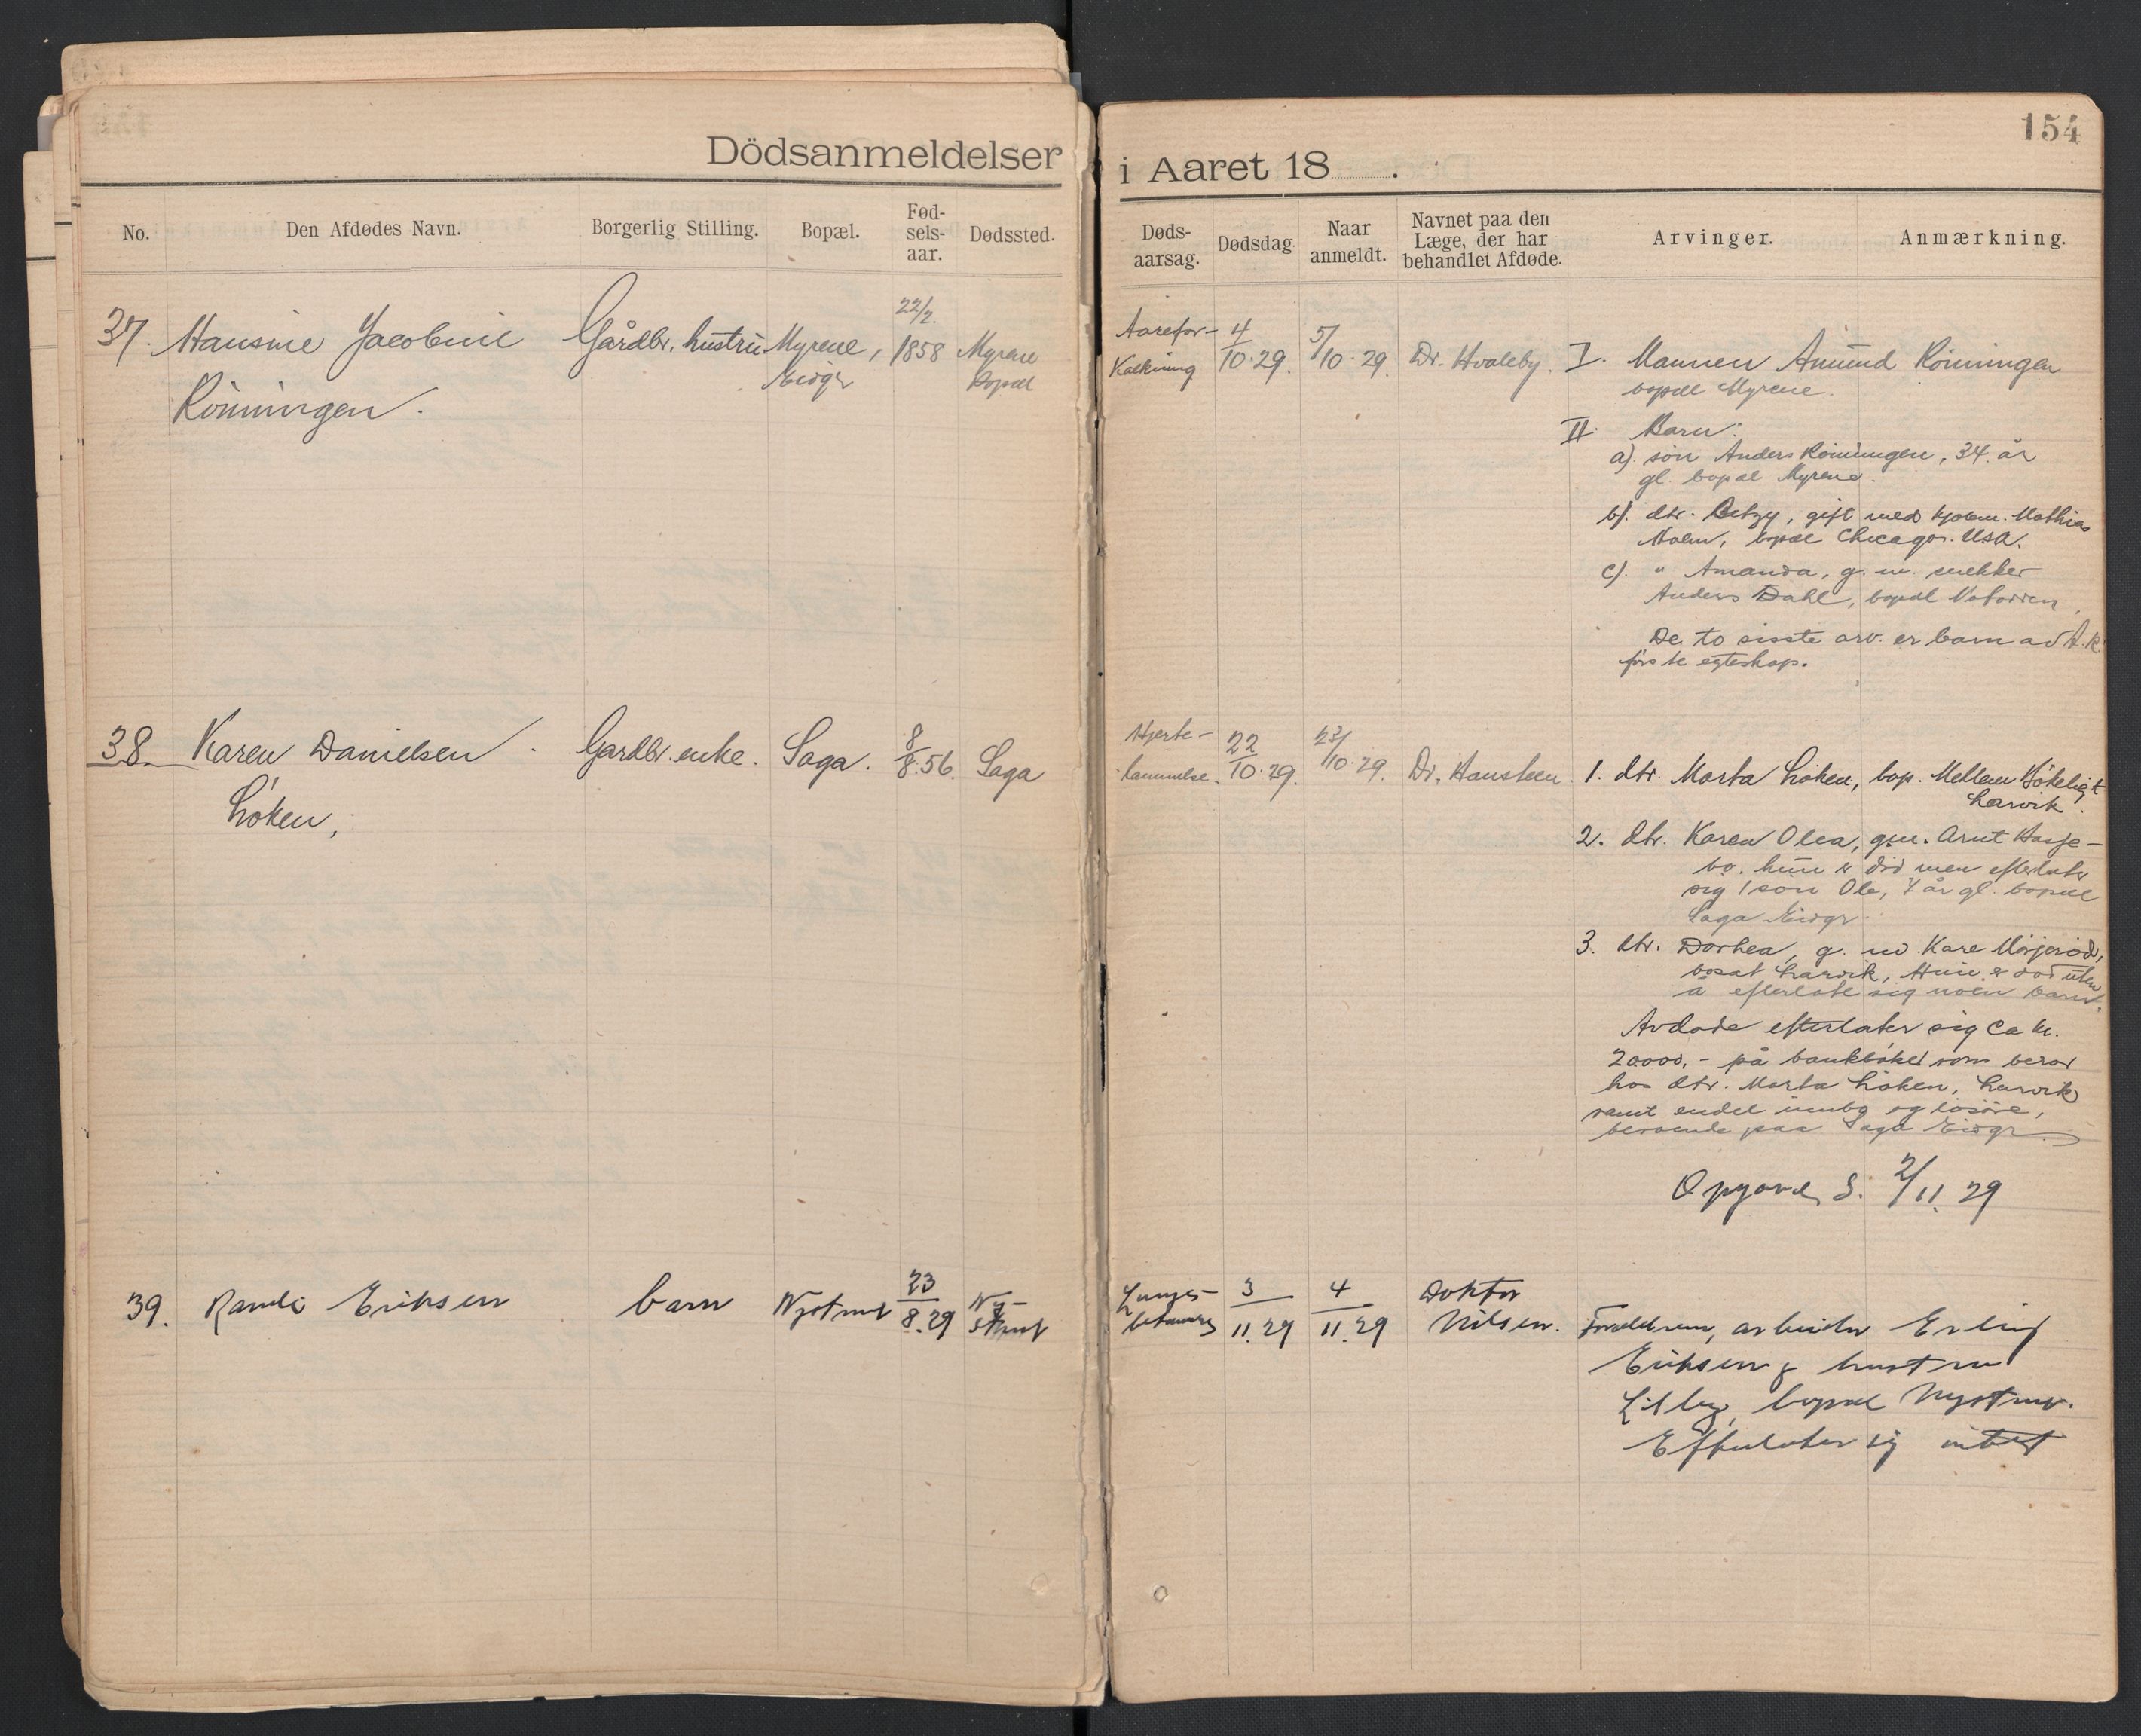 154
Dödsanmeldelser i Aaret 18 .
No.
Den Afdødes Navn.
Borgerlig Stilling.
Bopæl.
Fød-
sels-
aar.
Dødssted.
Døds-
aarsag.
Dødsdag.
Naar
anmeldt.
Navnet paa den
Læge, der har
behandlet Afdøde.
Arvinger.
Anmærkning.
37. Hansine Jacobine
Rönningen.
Gårdbr. hustru
Myrene,
Eidgr
22/2.
1858
Myrene
bopæl
Aarefor-
Kalkning
4
10.29.
5/
10.29.
Dr. Hvaleby.
I. Mannen Amund Rönningen
bopæl Myrene.
II. Barn:
a). sön Anders Rönningen, 34. år
gl. bopæl Myrene.
b). dtr. Betzy, gift med kjøbm. Mathias
Holm, bopæl Chicago. USA.
c). " Amanda, g. m. snekker
Anders Dahl, bopæl
De to sisste arv. er barn av A.R.
første egteskap.
38. Karen Danielsen
Löken,
Gardbr. enke.
Saga.
8
8.56.
Saga
Hjerte-
lammelse.
22
10.29.
23/
10.29.
Dr. Hansteen.
1. dtr. Marta Löken, bop. Mellem Bökeligt
Larvik.
2. dtr. Karen Olea, gm. Arnt Hasje-
bo. hun er död men efterlater
sig 1 sön Ole, år gl. bopæl
Saga Eidgr.
3. dtr. Dorthea, g. m. Kare
bosat Larvik, Hun er död uten
å efterlate sig noen barn.
Avdøde efterlater sig ca kr.
20000,- på bankböker som beror
hos dtr. Marta Löken, Larvik
samt endel innbo og lösöre,
beroende paa Saga Eidgr.
Opgjord S. 2/11. 29
39. Randi Eriksen
barn
Nystrand
23
8.29
Ny-
strand
Lunge-
betennelse
3
11.29
4
11.29
Doktor
Nilsen.
Foreldrene, arbeider Erling
Eriksen & hustru
bopæl Nystrand.
Efterlater sig intet